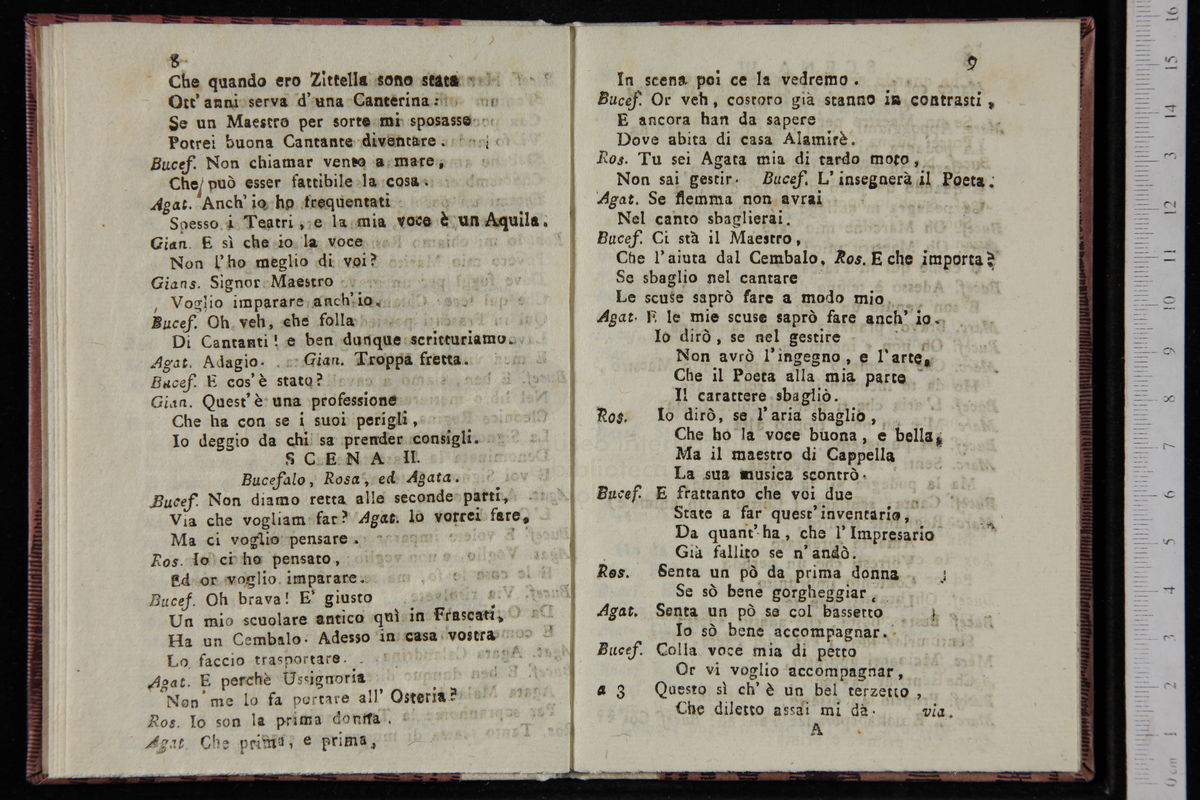 8
Che quando ero Zittella sono stata
Ott' anni serva d' una Canterina:
Se un Maestro per sorte mi sposasse
Potrei buona Cantante diventare.
Bucef. Non chiamar vento a mare,
Che può esser fattibile la cosa.
Agat. Anch' io ho frequentati
Spesso i Teatri, e la mia voce è un Aquila.
Gian. E sì che io la voce
Non l'ho meglio di voi?
Gians. Signor Maestro
Voglio imparare anch' io.
Bucef. Oh veh, che folla
Di Cantanti! e ben dunque scritturiamo.
Agat. Adagio. Gian. Troppa fretta.
Bucef. E cos' è stato?
Gian. Quest' è una professione
Che ha con se i suoi perigli,
Io deggio da chi sa prender consigli.
SCENA II.
Bucefalo, Rosa, ed Agata.
Bucef. Non diamo retta alle seconde parti,
Via che vogliam far? Agat. Io vorrei fare,
Ma ci voglio pensare.
Ros. Io ci ho pensato,
Ed or voglio imparare.
Bucef. Oh brava! E' giusto
Un mio scuolare antico quì in Frascati,
Ha un Cembalo. Adesso in casa vostra
Lo faccio trasportare.
Agat. E perchè Ussignoria
Non me lo fa portare all' Osteria?
Ros. Io son la prima donna.
Agat Che prima, e prima,
9
In scena poi ce la vedremo.
Bucef. Or veh, costoro già stanno in contrasti,
E ancora han da sapere
Dove abita di casa Alamirè.
Ros. Tu sei Agata mia di tardo moto,
Non sai gestir. Bucef. L' insegnerà il Poeta.
Agat. Se flemma non avrai
Nel canto sbaglierai.
Bucef. Ci stà il Maestro,
Che l'aiuta dal Cembalo. Ros. E che importa?
Se sbaglio nel cantare
Le scuse saprò fare a modo mio
Agat. E le mie scuse saprò fare anch' io.
Io dirò, se nel gestire
Non avrò l'ingegno, e l'arte,
Che il Poeta alla mia parte
Il carattere sbagliò.
Ros. Io dirò, se l'aria sbaglio,
Che ho la voce buona, e bella,
Ma il maestro di Cappella
La sua musica scontrò.
Bucef. E frattanto che voi due
State a far quest' inventario,
Da quant' ha, che l'Impresario
Già fallito se n' andò.
Ros. Senta un pò da prima donna
Se sò bene gorgheggiar.
Agat. Senta un pò se col bassetto
Io sò bene accompagnar.
Bucef. Colla voce mia di petto
Or vi voglio accompagnar,
a 3 Questo sì ch' è un bel terzetto,
Che diletto assai mi dà. via.
A
16
15
14
13
12
11
10
9
8
7
6
5
4
3
2
1
0 cm